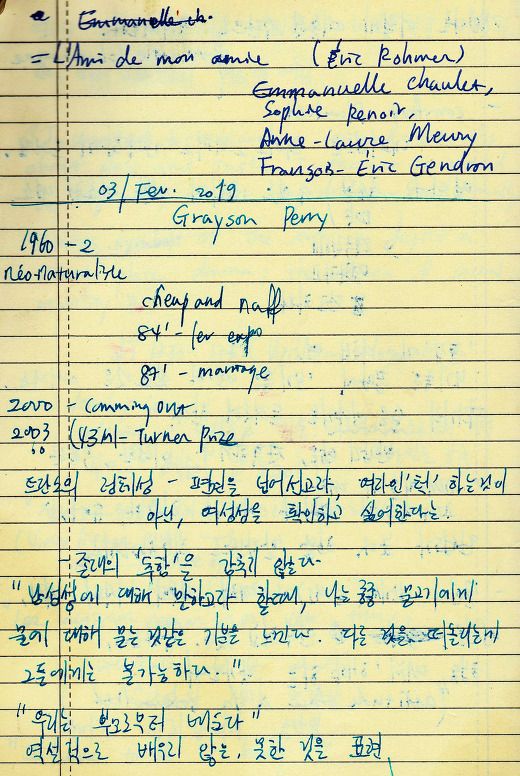 Emmanuelle ch.
= L'Ami de mon amie (Éric Rohmer)
Emmanuelle Chaulet,
Sophie Renoir,
Anne-Laure Meury
François-Éric Gendron
03/Fev. 2019
Grayson Perry
1960 - 2
néo-naturaliste
cheap and naff
84' - 1er expo
87' - marriage
2000 - Comming out
2003 (43세) - Turner Prize
- 편견을 넘어서고자, 여자인 '척' 하는것이
아닌, 여성성을 확인하고 싶어한다는.
- 존재의 '독함'을 감추지 않는다
"남성성에 대해 말하고자 할때, 나는 종종 물고기에게
물에 대해 묻는 것같은 기분을 느낀다. 다른 것을 떠올리는게
그들에게는 불가능하다."
"우리는 부모로부터 배운다"
역설적으로 배우지 않은, 못한 것을 표현